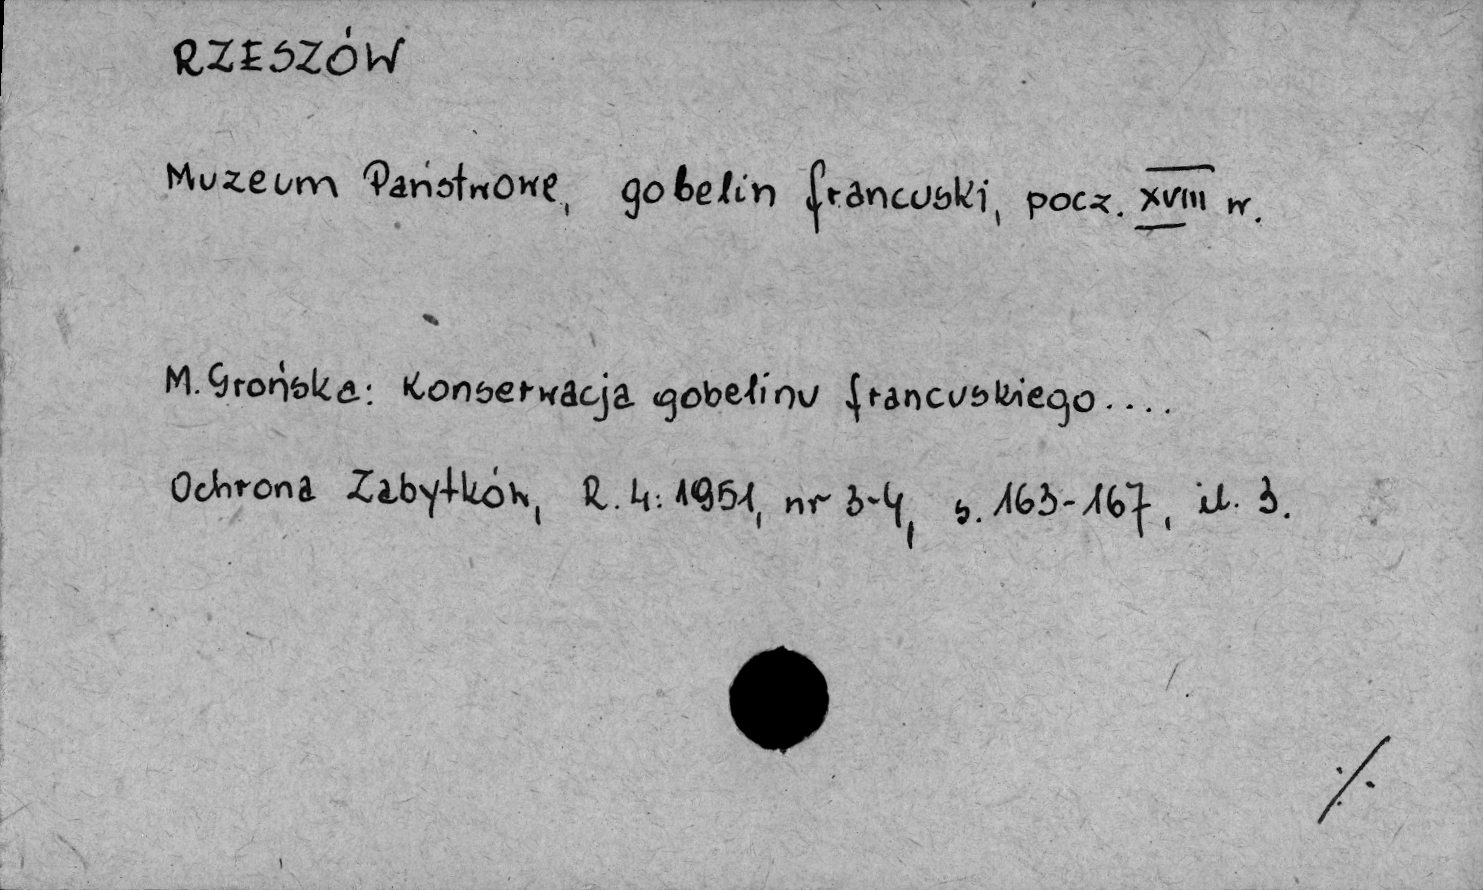 RZESZÓW
Muzeum Państwowe, gobelin francuski, pocz. XVIII w.
M. Grońska: Konserwacja gobelinu francuskiego....
Ochrona Zabytków, R. 4: 1951, nr 3-4, s. 163-167, il. 3.
./.